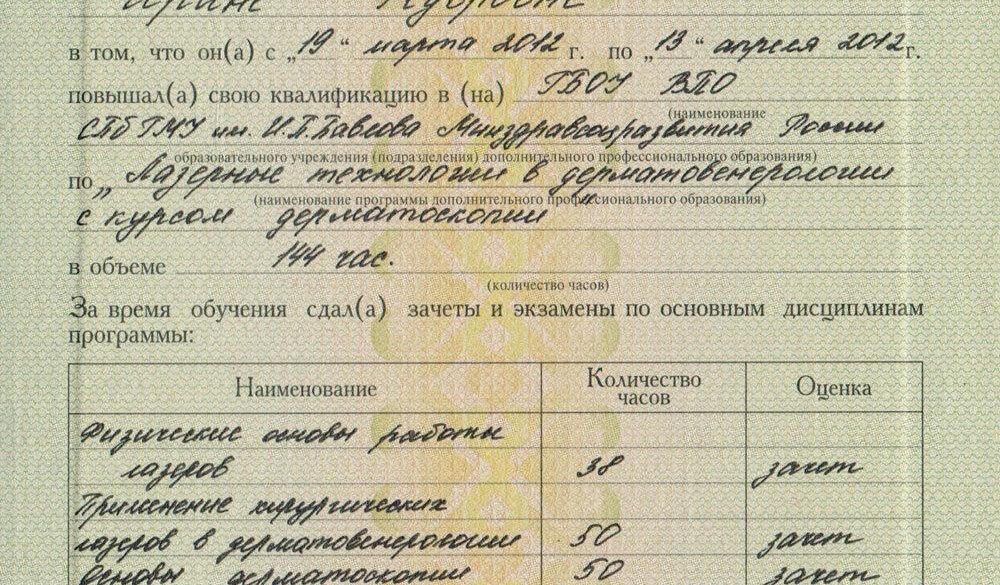 в том, что он(а) с „19“ марта 2012 г. по „13“ апреля 2012 г.
повышал(а) свою квалификацию в (на) ГБОУ ВПО
(наименование
СПб ГМУ им. И.П. Павлова Минздравсоцразвития России
образовательного учреждения (подразделения) дополнительного профессионального образования)
по „Лазерные технологии в дерматовенерологии
(наименование программы дополнительного профессионального образования)
с курсом дерматоскопии“
в объеме 144 час.
(количество часов)
За время обучения сдал(а) зачеты и экзамены по основным дисциплинам
программы:
Наименование Количество часов Оценка
Физические основы работы
лазеров 38 зачет
Применение хирургических
лазеров в дерматовенерологии 50 зачет
Основы дерматоскопии 50 зачет